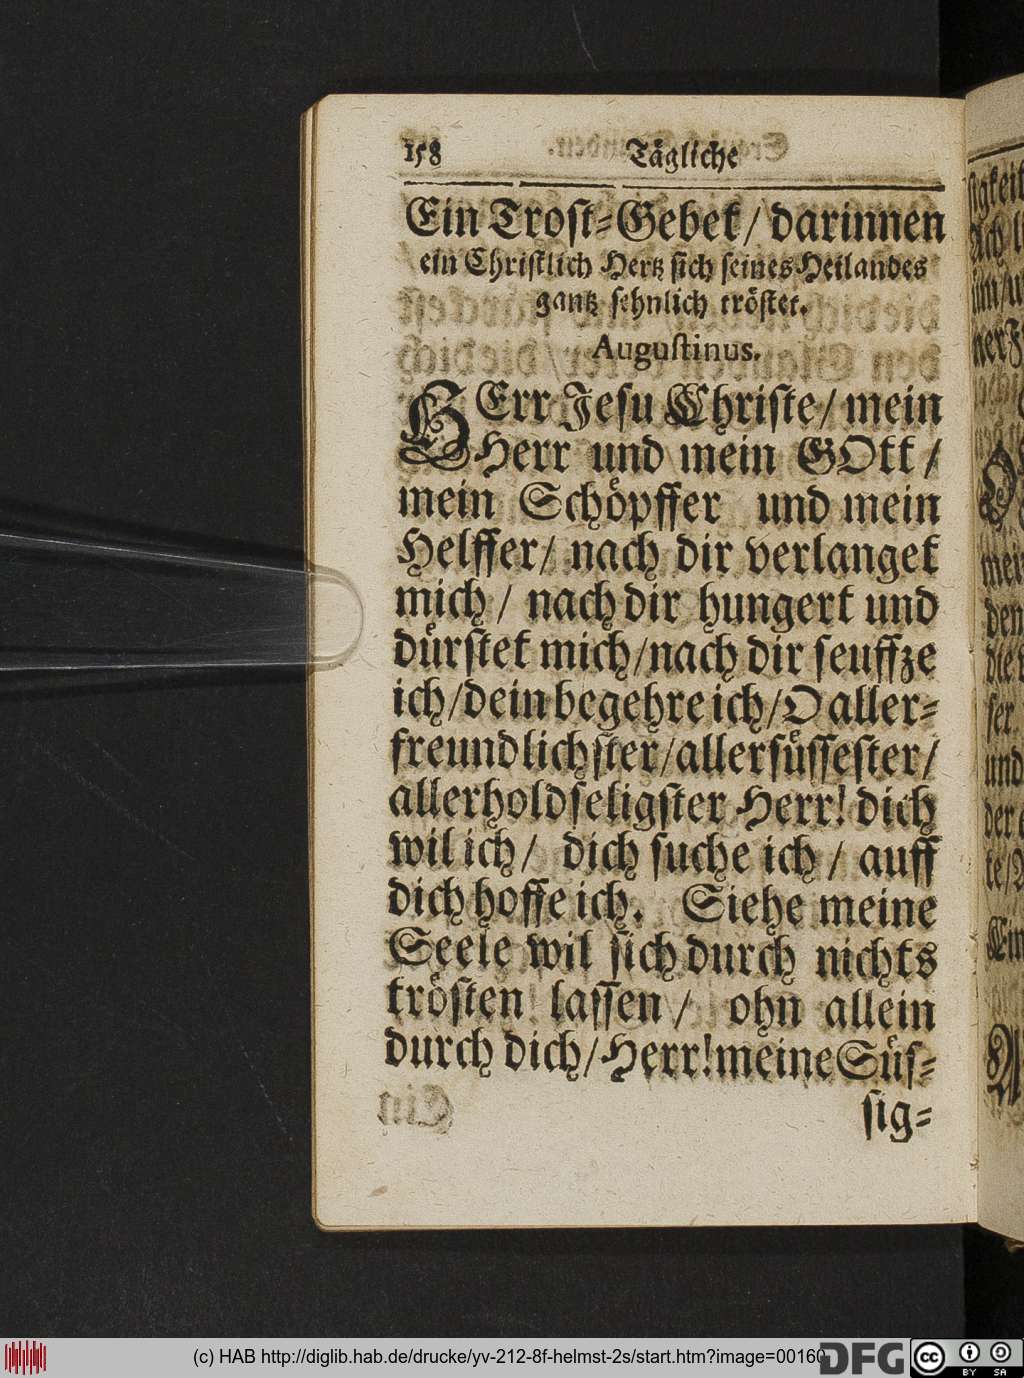 158 Tägliche
Ein Trost-Gebet / darinnen
ein Christlich Hertz sich seines Heilandes
gantz sehnlich tröstet.
Augustinus.
HErr Jesu Christe / mein
Herr und mein GOtt /
mein Schöpffer und mein
Helffer / nach dir verlanget
mich / nach dir hungert und
dürstet mich / nach dir seuffze
ich / dein begehre ich / O aller-
freundlichster / allersüssester /
allerholdseligster Herr! dich
wil ich / dich suche ich / auff
dich hoffe ich. Siehe meine
Seele wil sich durch nichts
trösten lassen / ohn allein
durch dich / Herr! meine Süs-
sig-
(c) HAB http://diglib.hab.de/drucke/yv-212-8f-helmst-2s/start.htm?image=00160
DFG
cc BY SA